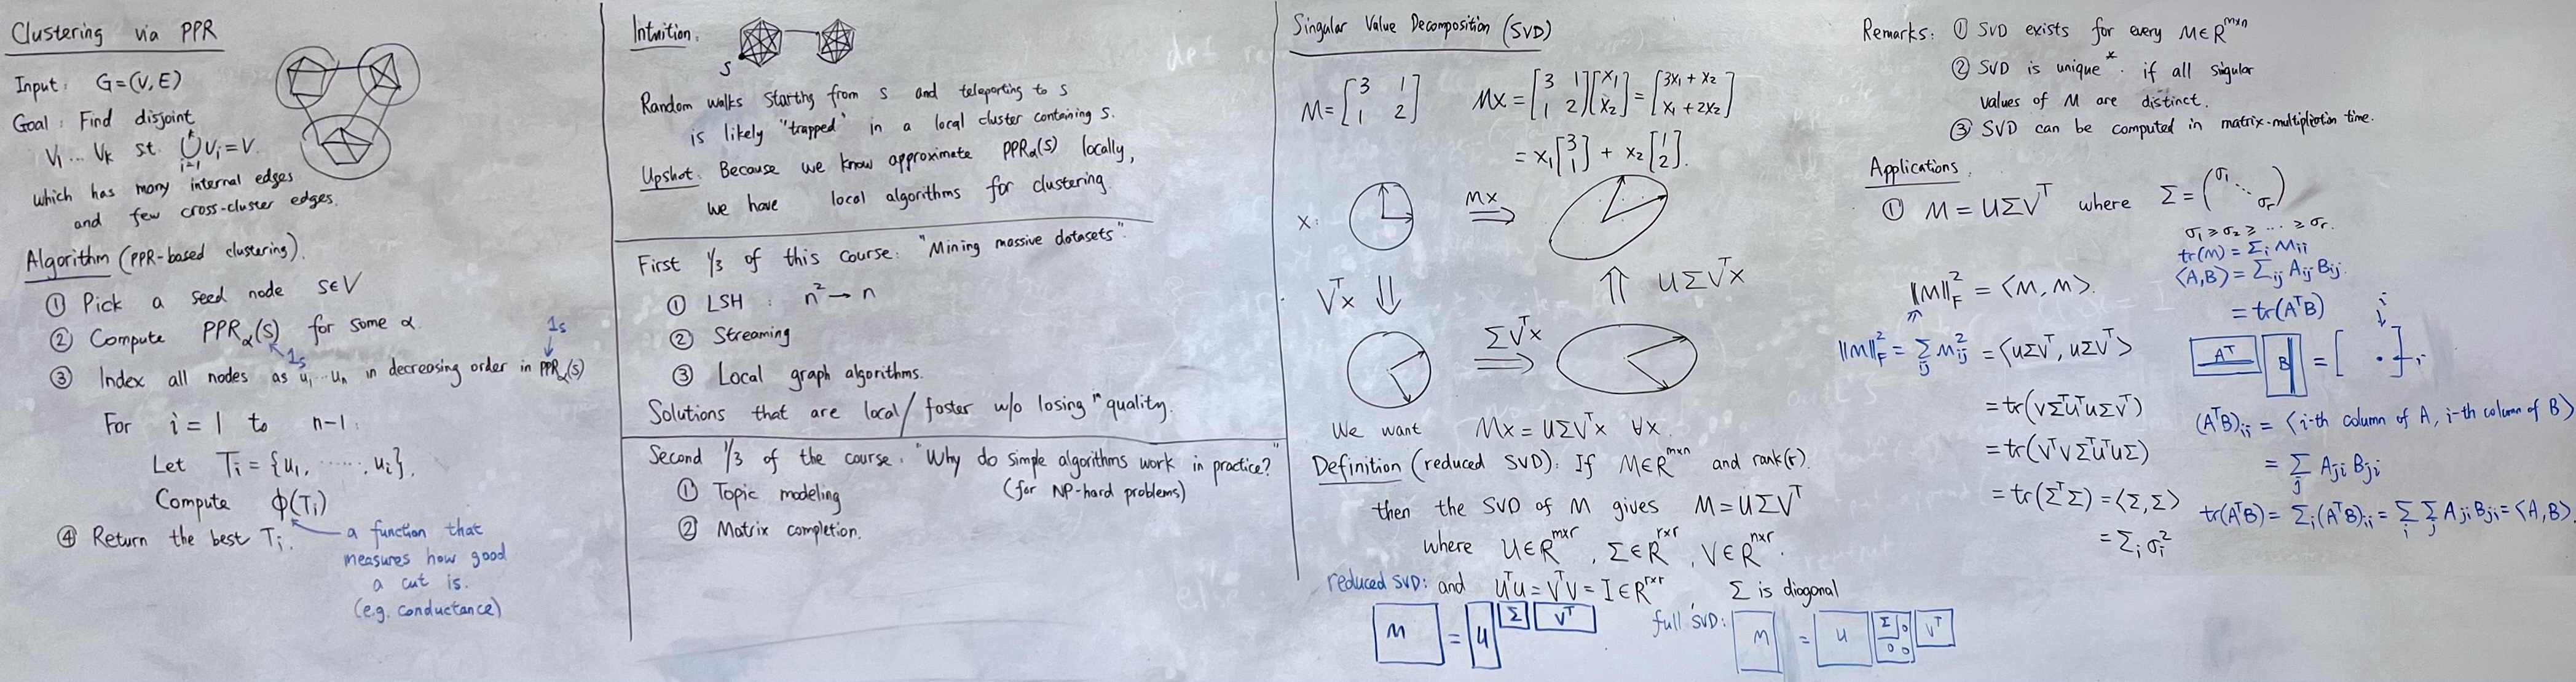 Clustering via PPR
Input: G=(V,E)
Goal: Find disjoint
V₁ ... Vₖ st. ⋃ᵢ₌₁ᵏ Vᵢ = V.
which has many internal edges
and few cross-cluster edges.
Algorithm (PPR-based clustering).
① Pick a seed node s∈V
② Compute PPRα(s) for some α.
1s
1s
③ Index all nodes as u₁...uₙ in decreasing order in PPRα(s)
For i = 1 to n-1:
Let Tᵢ = {u₁, ......, uᵢ},
Compute ϕ(Tᵢ)
④ Return the best Tᵢ.
a function that
measures how good
a cut is.
(e.g. conductance)
Intuition:
s
Random walks starting from s and teleporting to s
is likely "trapped" in a local cluster containing s.
Upshot: Because we know approximate PPRα(s) locally,
we have local algorithms for clustering.
First 1/3 of this course: "Mining massive datasets".
① LSH : n² → n
② Streaming
③ Local graph algorithms.
Solutions that are local/faster w/o losing " quality.
Second 1/3 of the course: "Why do simple algorithms work in practice?"
(for NP-hard problems)
① Topic modeling
② Matrix completion.
Singular Value Decomposition (SVD)
M = [3 1; 1 2] Mx = [3 1; 1 2][x₁; x₂] = [3x₁ + x₂; x₁ + 2x₂]
= x₁[3; 1] + x₂[1; 2].
x: Mx ⇒
Vᵀx ⇓ ⇑ UΣVᵀx
ΣVᵀx ⇒
We want Mx = UΣVᵀx ∀x.
Definition (reduced SVD): If M∈Rᵐˣⁿ and rank(r).
then the SVD of M gives M = UΣVᵀ
where U∈Rᵐˣʳ, Σ∈Rʳˣʳ, V∈Rⁿˣʳ.
reduced SVD: and UᵀU = VᵀV = I∈Rʳˣʳ Σ is diagonal
M = U Σ Vᵀ
full SVD: M = U Σ 0 0 0 Vᵀ
Remarks: ① SVD exists for every M∈Rᵐˣⁿ
② SVD is unique* if all sigular
values of M are distinct.
③ SVD can be computed in matrix-multiplication time.
Applications.
① M = UΣVᵀ where Σ = (σ₁ ⋱ σᵣ)
σ₁ ≥ σ₂ ≥ ... ≥ σᵣ.
tr(M) = Σᵢ Mᵢᵢ
⟨A,B⟩ = Σᵢⱼ Aᵢⱼ Bᵢⱼ.
= tr(AᵀB)
‖M‖²F = ⟨M, M⟩.
‖M‖²F = Σᵢⱼ M²ᵢⱼ = ⟨UΣVᵀ, UΣVᵀ⟩
= tr(VΣᵀUᵀUΣVᵀ)
= tr(VᵀVΣᵀUᵀUΣ)
= tr(ΣᵀΣ) = ⟨Σ,Σ⟩
= Σᵢ σᵢ²
i
Aᵀ B = [ · ] i
(AᵀB)ᵢᵢ = ⟨i-th column of A, i-th column of B⟩
= Σⱼ Aⱼᵢ Bⱼᵢ
tr(AᵀB) = Σᵢ(AᵀB)ᵢᵢ = Σᵢ Σⱼ Aⱼᵢ Bⱼᵢ = ⟨A,B⟩.